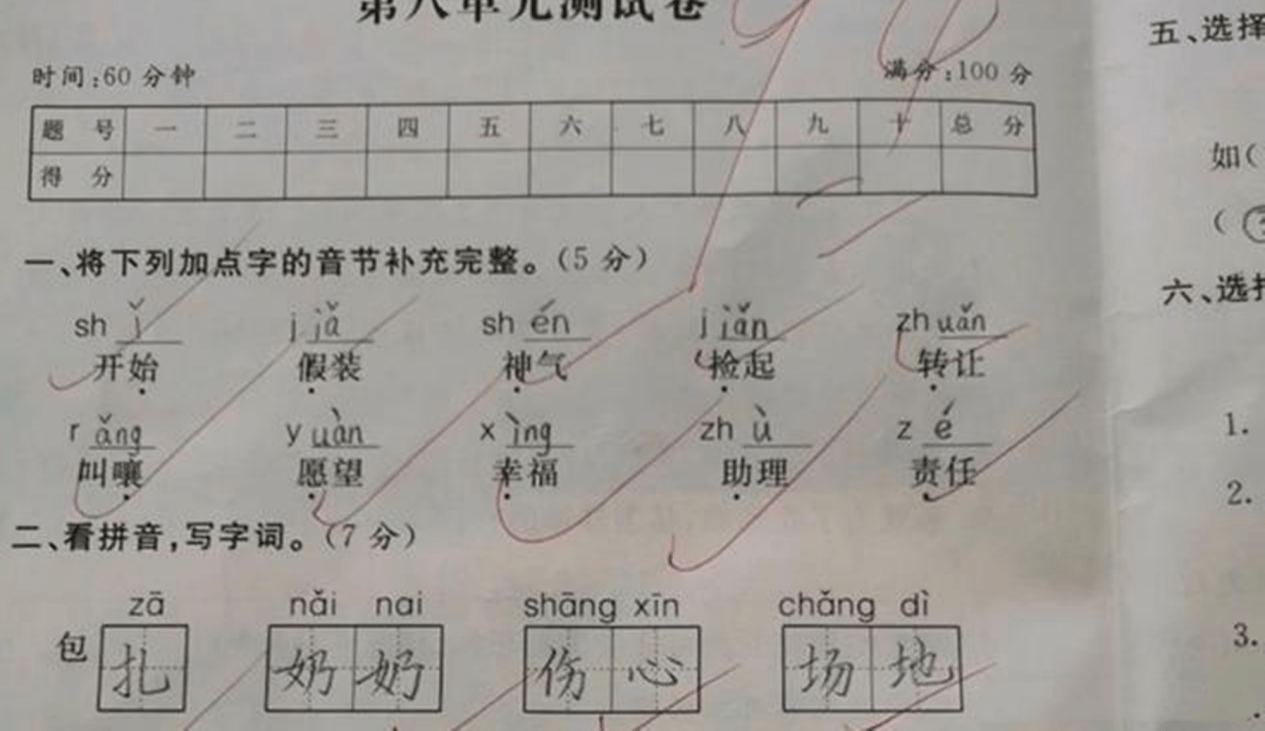 第八单元测试卷
时间:60分钟 满分:100分
题号 一 二 三 四 五 六 七 八 九 十 总分
得分
一、将下列加点字的音节补充完整。(5分)
shǐ jiǎ shén jiǎn zhuǎn
开始 假装 神气 捡起 转让
rǎng yuàn xìng zhù zé
叫嚷 愿望 幸福 助理 责任
二、看拼音,写字词。(7分)
zā nǎi nai shāng xīn chǎng dì
包扎 奶奶 伤心 场地
五、选择
如(
(
六、选择
1.
2.
3.